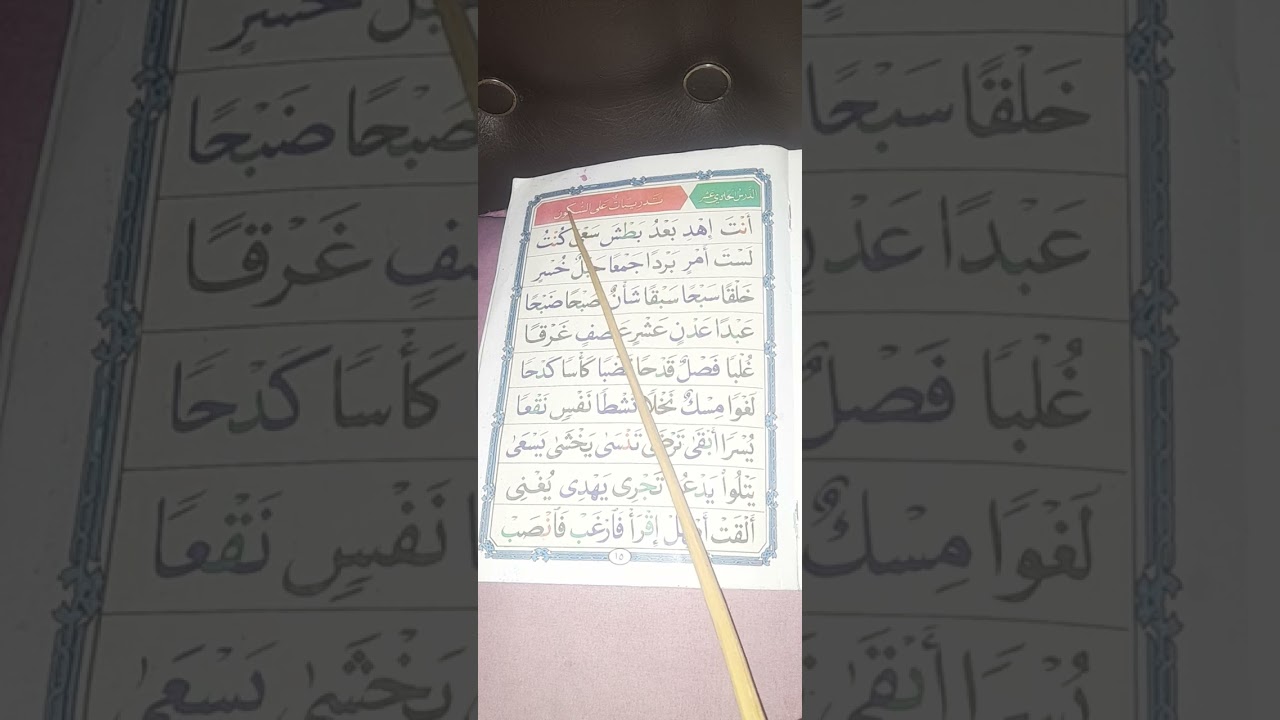 الدرس الحادي عشر
تدريبات على السكون
أَنْتَ إِهْدِ بَعْدُ بَطْشَ سَعْىَ كُنْتُ
لَسْتَ أَمْرٍ بَرْدًا جَمْعًا حَبْلٌ خُسْرٍ
خَلْقًا سَبْحًا سَبْقًا شَأْنٌ صُبْحًا ضَبْحًا
عَبْدًا عَدْنٍ عَشْرٍ عَصْفٍ غَرْقًا
غُلْبًا فَصْلٌ قَدْحًا قَضْبًا كَأْسًا كَدْحًا
لَغْوًا مِسْكٌ نَخْلًا نَشْطًا نَفْسٍ نَقْعًا
يُسْرًا أَبْقَىٰ تَرْضَىٰ تَنْسَىٰ يَخْشَىٰ يَسْعَىٰ
يَتْلُوا۟ يَدْعُوا۟ تَجْرِى يَهْدِى يُغْنِى
أَلْقَتْ إِقْرَأْ فَارْغَبْ فَانْصَبْ
١٥